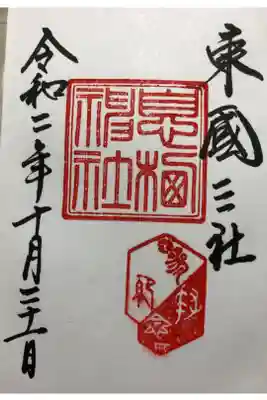 東國三社
息栖
神社
令和二年十月三十一日